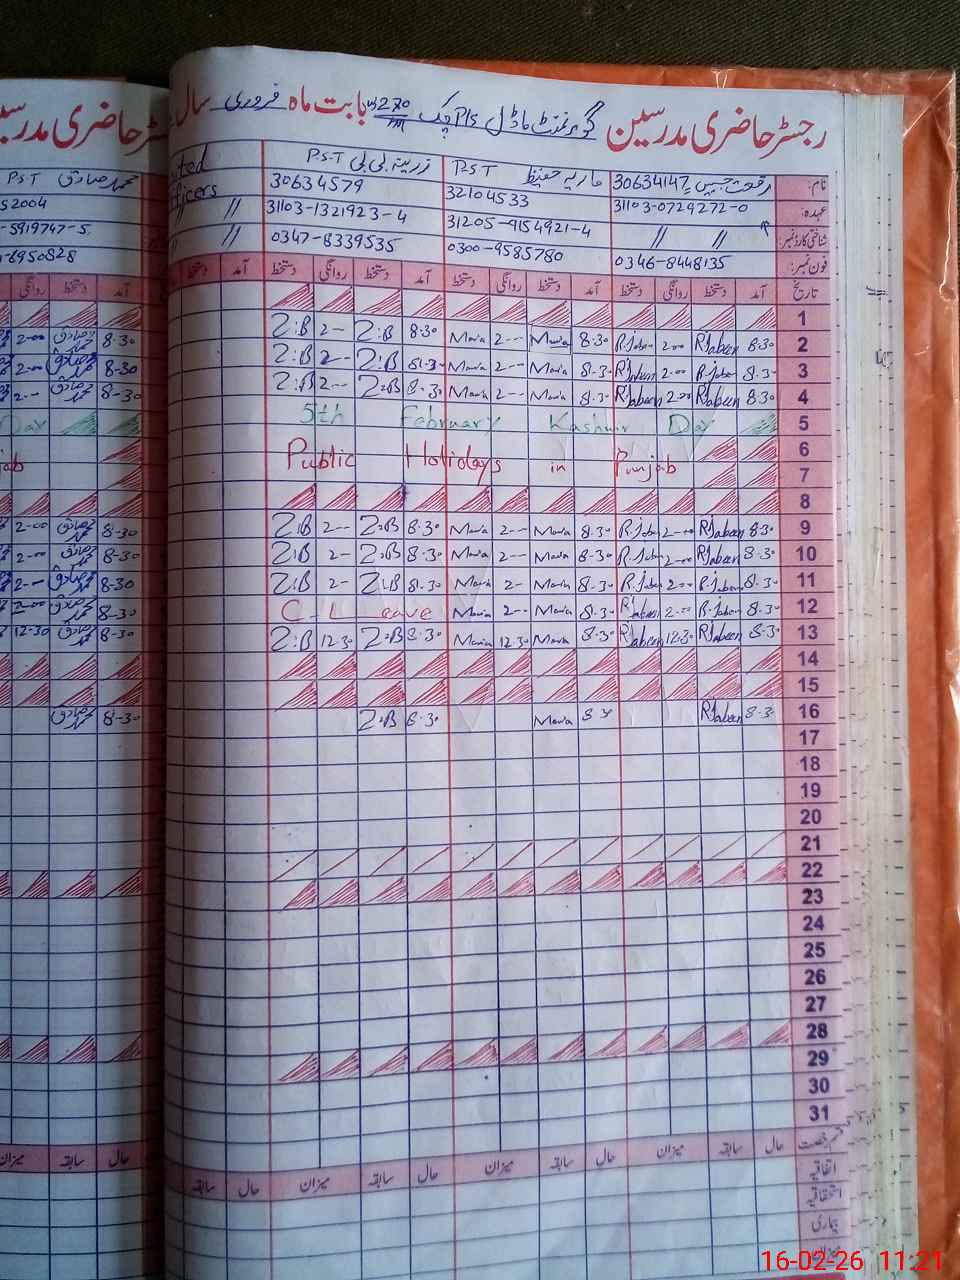 رجسٹر حاضری مدرسین گورنمنٹ ماڈل P/s چک 270 بابت ماہ فروری سال
نام: رفعت جبیں 30634147 ماریہ حفیظ P.S.T زرینہ بی بی P.S.T محمد صادق P.S.T
عہدہ: 31103-0729272-0 32104533 30634579 52004
شناختی کارڈ نمبر: // // 31205-9154921-4 31103-1321923-4 // -5919747-5
فون نمبر: 0346-8448135 0300-9585780 0347-8339535 // -6950828
تاریخ آمد دستخط روانگی دستخط آمد دستخط روانگی دستخط آمد دستخط روانگی دستخط آمد دستخط آمد دستخط روانگی
1
2 8.30 R.Jabeen 2.00 R.Jaben 8.30 Maria 2-- Maria 8.30 Z:B 2-- Z:B 8.30 محمد صادق 2.00
3 8.30 R.Jaben 2.00 R.Jabeen 8.30 Maria 2-- Maria 8.30 Z:B 2-- Z:B 8-30 محمد صادق 2.00
4 8.30 R.Jabeen 2.00 R.Jabeen 8.30 Maria 2-- Maria 8.30 Z:B 2-- Z:B 8-30 محمد صادق 2--
5 5th Febrary Kashmir Day Day
6
7 Public Holidays in Punjab ab
8
9 8.30 R.Jabeen 2.00 R.Jaben 8.30 Maria 2-- Maria 8.30 Z:B 2-- Z:B 8-30 محمد صادق 2-00
10 8.30 R.Jabeen 2.00 R.Jaben 8.30 Maria 2-- Maria 8.30 Z:B 2- Z:B 8-30 محمد صادق 2-00
11 8.30 R.Jaben 2.00 R.Jaben 8.30 Maria 2- Maria 8.30 Z:B 2- Z:B 8-30 محمد صادق 2-00
12 8.30 R.Jaben 2.00 R.Jabeen 8.30 Maria 2-- Maria C-Leave 8-30 محمد صادق 2-00
13 8.30 R.Jabeen 12.30 R.Jabeen 8.30 Maria 12.30 Maria 8.30 Z:B 12.30 Z:B 8-30 محمد صادق 12-30
14
15
16 8.30 R.Jabeen 8.30 Maria 8.30 Z:B 8-30 محمد صادق
17
18
19
20
21
22
23
24
25
26
27
28
29
30
31
قسم رخصت حال سابقہ میزان حال سابقہ میزان حال سابقہ میزان حال سابقہ حال سابقہ میزان
اتفاقیہ
استحقاقیہ
بیماری
میزان
16-02-26 11:21